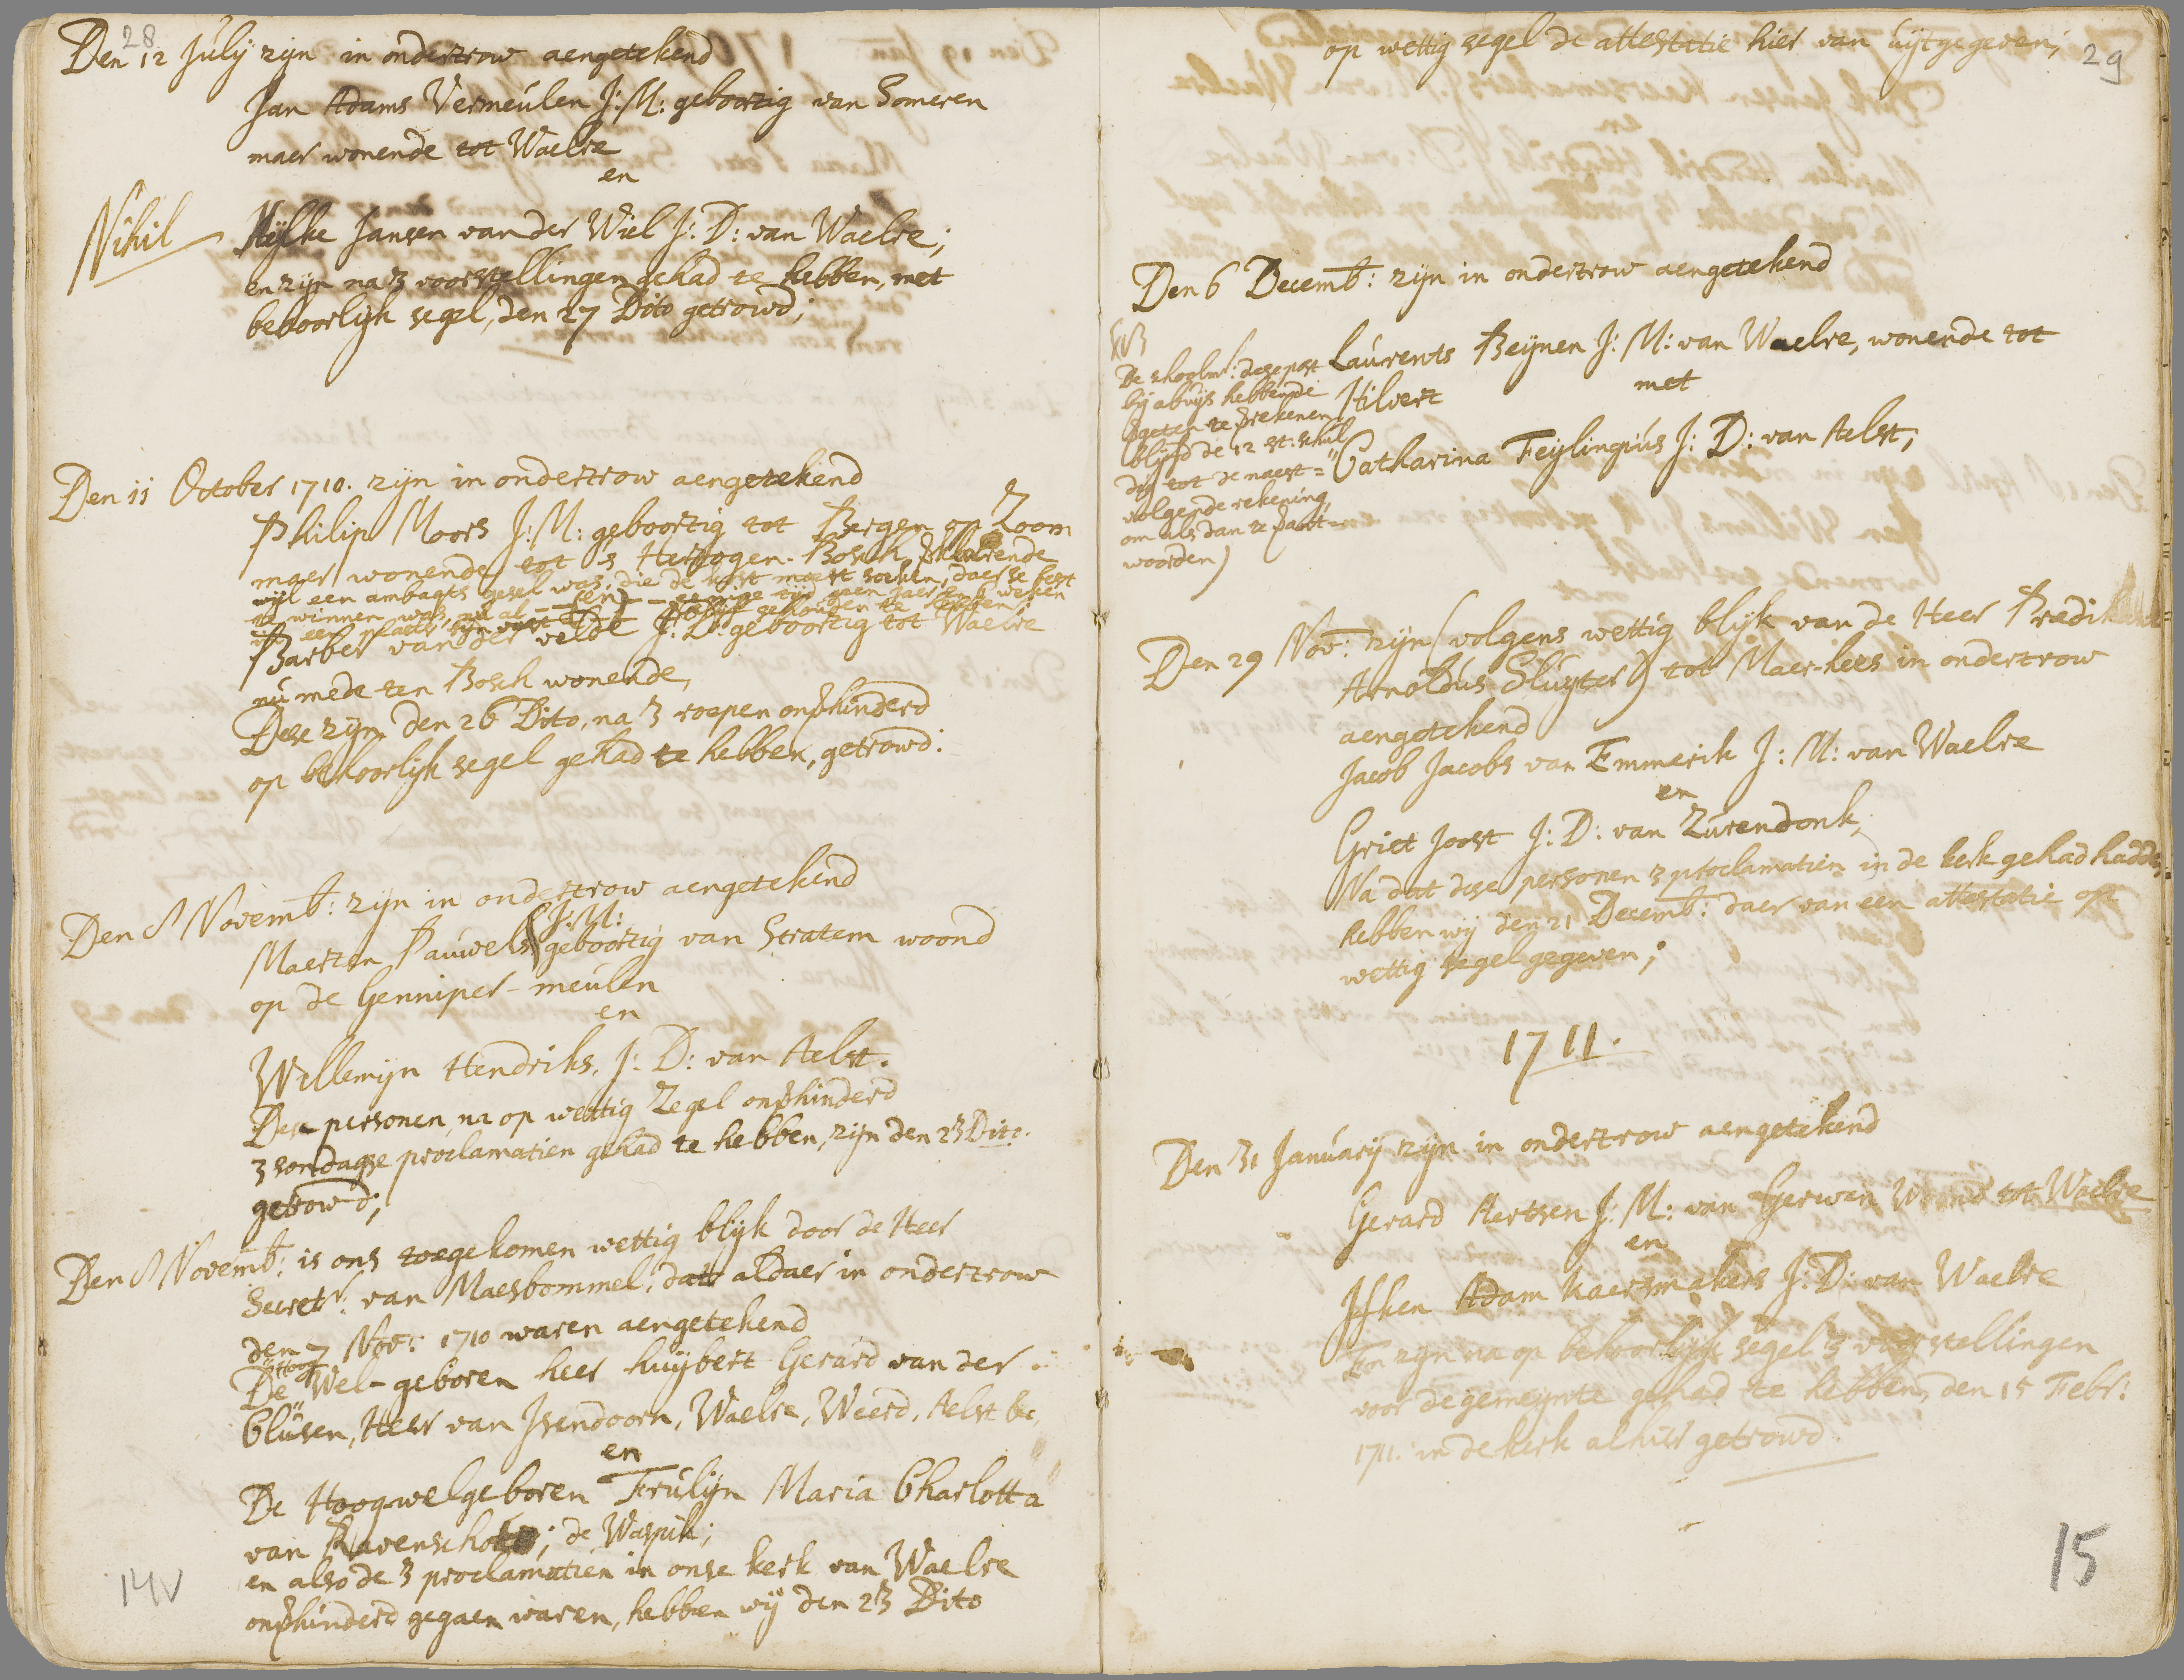 28
Den 12 July zijn in ondertrow aengetekend
Jan Adams Vermeulen J: M: geboortig van Someren
maer wonende tot Waelre
en
Nihil
Heylke Jansen van der Wiel J: D: van Waelre;
en zijn na 3 voorstellingen gehad te hebben, met
behoorlijk segel, den 27 Dito getrowd;
Den 11 October 1710. zijn in ondertrow aengetekend
Philip Moors J: M: geboortig tot Bergen op Zoom
maer wonende tot s Hertogen-Bosch,
wijl een ambagts gesel was, die de kost moest soeken, daer se best
te winnen was, nu al
Barber van der Velde J: D: geboortig tot Waelre
nu mede ten Bosch wonende,
Dese zijn den 26 Dito, na 3 roepen onverhinderd
op behoorlijk segel gehad te hebben, getrowd:
Den 8 Novemb: zijn in ondertrow aengetekend
J: M:
Maerten Pauwels geboortig van Stratem woond
op de Genniper-meulen
en
Willemijn Hendriks, J: D: van Aelst.
Dese personen, na op wettig Zegel onverhinderd
3 sondagse proclamatien gehad te hebben, zijn den 23 Dito.
getrowd;
Den 8 Novemb: is ons toegekomen wettig blijk door de Heer
Secret: van Maesbommel, dat aldaer in ondertrow
den 7 Nov: 1710 waren aengetekend
Hoog
De Wel-geboren heer huijbert Gerard van der
Clusen, Heer van Isendoorn, Waelre, Weerd, Aelst &c,
en
De Hoogwelgeboren Frulijn Maria Charlotta
van Ravenschot; de Waspik;
en also de 3 proclamatien in onse kerk van Waelre
onverhinderd gegaen waren, hebben wij den 23 Dito
14v
op wettig segel de attestatie hier van uijtgegeven;
29
Den 6 Decemb: zijn in ondertrow aengetekend
Laurents Beijnen J: M: van Waelre, wonende tot
Hilvert
met
Catharina Feylingius J: D: van Aelst;
De schoolmr: dese post
bij abuijs hebbende
vergeten te verrekenen
blijfd de 12 st: schul
dig tot de naest=
volgende rekening,
om als dan te verant=
woorden)
Den 29 Nov: zijn (volgens wettig blijk van de Heer Predikant
Arnoldus Sluyter) tot Maer-hees in ondertrow
aengetekend
Jacob Jacobs van Emmerik J: M: van Waelre
en
Griet Joost J: D: van Zurendonk,
Na dat dese personen 3 proclamatien in de kerk gehad hadden,
hebben wij den 21 Decemb: daer van een attestatie op
wettig segel gegeven;
1711.
Den 31 January zijn in ondertrow aengetekend
Gerard Aertsen J: M: van Gerwen woond tot Waelre
en
Ifken Adam Kaersmakers J: D: van Waelre
En zijn na op behoorlijk segel 3 voorstellingen
voor de gemeijnte gehad te hebben, den 15 Febr:
1711. in de kerk alhier getrowd.
15